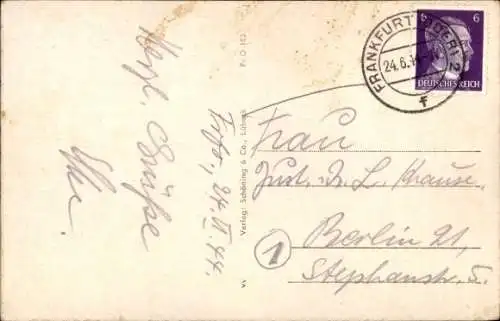 FRANKFURT (ODER) 2
24.6.
f
6 6
DEUTSCHES REICH
Herzl. Grüße
Frfo, 24. VI. 44.
Fr O 152
Verlag: Schöning & Co., Lübeck
Frau
Just. In. L. Krause
Berlin 21,
1
Stephanstr. 5.